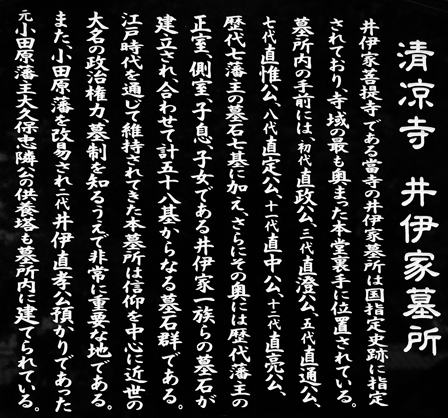 清凉寺 井伊家墓所
井伊家菩提寺である當寺の井伊家墓所は国指定史跡に指定
されており、寺域の最も奥まった本堂裏手に位置されている。
墓所内の手前には、初代直政公、三代直澄公、五代直通公、
七代直惟公、八代直定公、十一代直中公、十二代直亮公、
歴代七藩主の墓石七基に加え、さらにその奥には歴代藩主の
正室、側室、子息、子女である井伊家一族らの墓石が
建立され、合わせて計五十八基からなる墓石群である。
江戸時代を通して維持されてきた本墓所は信仰を中心に近世の
大名の政治権力、墓制を知るうえで非常に重要な地である。
また、小田原藩を改易され二代井伊直孝公預かりであった
元小田原藩主大久保忠隣公の供養塔も墓所内に建てられている。